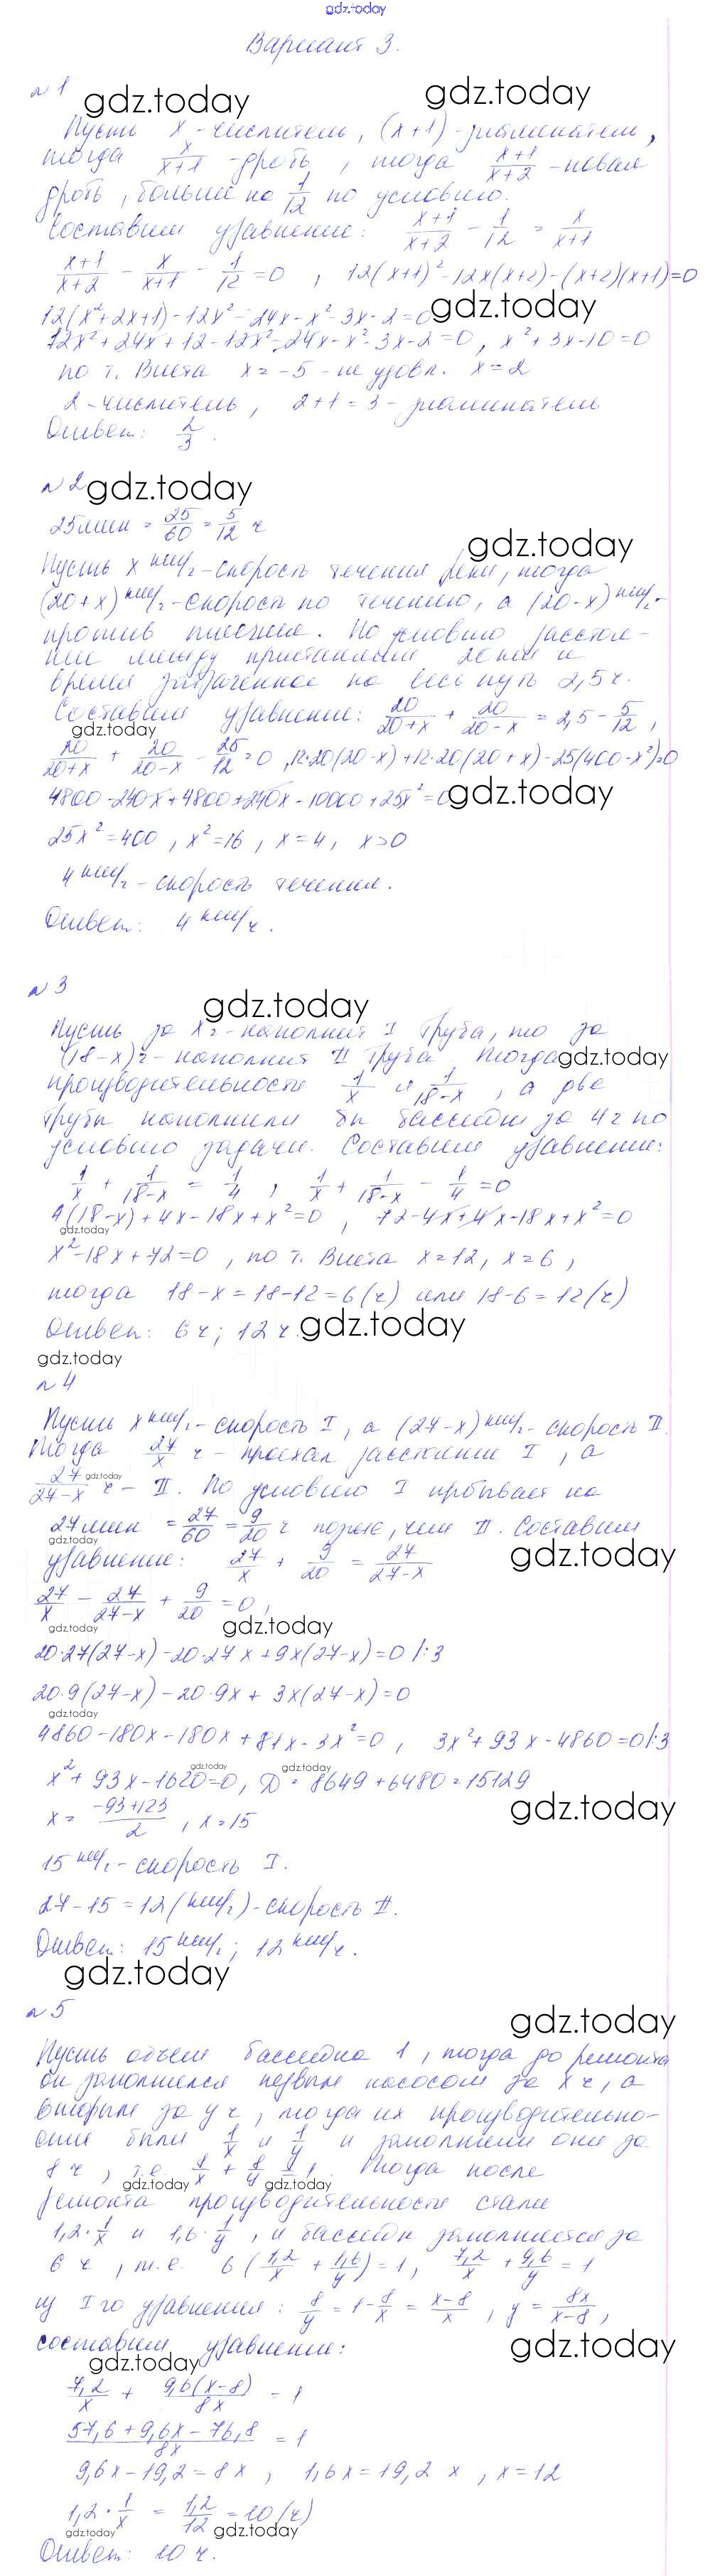 gdz.today
Вариант 3.
№1
gdz.today gdz.today
Пусть x - числитель, (x+1) - знаменатель,
тогда x/(x+1) - дробь, тогда (x+1)/(x+2) - новая
дробь, больше на 1/12 по условию.
Составим уравнение: (x+1)/(x+2) - 1/12 = x/(x+1)
(x+1)/(x+2) - x/(x+1) - 1/12 = 0 , 12(x+1)² - 12x(x+2) - (x+2)(x+1) = 0
12(x²+2x+1) - 12x² - 24x - x² - 3x - 2 = 0 gdz.today
12x² + 24x + 12 - 12x² - 24x - x² - 3x - 2 = 0 , x² + 3x - 10 = 0
по т. Виета x = -5 - не удовл. x = 2
2 - числитель, 2+1 = 3 - знаменатель
Ответ: 2/3.
№2 gdz.today
25 мин = 25/60 = 5/12 ч
gdz.today
Пусть x км/ч - скорость течения реки, тогда
(20+x) км/ч - скорость по течению, а (20-x) км/ч -
против течения. По условию расстоя-
ние между пристанями 20 км и
время затраченное на весь путь 2,5 ч.
Составим уравнение: 20/(20+x) + 20/(20-x) = 2,5 - 5/12 ,
gdz.today
20/(20+x) + 20/(20-x) - 25/12 = 0 , 12·20(20-x) + 12·20(20+x) - 25(400-x²) = 0
4800 - 240x + 4800 + 240x - 10000 + 25x² = 0 gdz.today
25x² = 400 , x² = 16 , x = 4 , x > 0
4 км/ч - скорость течения.
Ответ: 4 км/ч.
№3
gdz.today
Пусть за x ч - наполнит I труба, то за
(18-x) ч - наполнит II труба. Тогда gdz.today
производительности 1/x и 1/(18-x) , а две
трубы наполнили бы бассейн за 4 ч по
условию задачи. Составим уравнение:
1/x + 1/(18-x) = 1/4 , 1/x + 1/(18-x) - 1/4 = 0
4(18-x) + 4x - 18x + x² = 0 , 72 - 4x + 4x - 18x + x² = 0
gdz.today
x² - 18x + 72 = 0 , по т. Виета x = 12, x = 6 ,
тогда 18 - x = 18 - 12 = 6 (ч) или 18 - 6 = 12 (ч)
Ответ: 6 ч; 12 ч. gdz.today
gdz.today
№4
Пусть x км/ч - скорость I, а (27-x) км/ч - скорость II.
Тогда 27/x ч - проехал расстояние I , а
27/(27-x) ч - II. По условию I прибывает на
gdz.today
27 мин = 27/60 = 9/20 ч позже, чем II. Составим
gdz.today
уравнение: 27/x + 9/20 = 27/(27-x) gdz.today
27/x - 27/(27-x) + 9/20 = 0 ,
gdz.today gdz.today
20·27(27-x) - 20·27x + 9x(27-x) = 0 |:3
20·9(27-x) - 20·9x + 3x(27-x) = 0
gdz.today
4860 - 180x - 180x + 81x - 3x² = 0 , 3x² + 93x - 4860 = 0 |:3
gdz.today gdz.today
x² + 93x - 1620 = 0 , D = 8649 + 6480 = 15129
x = (-93+123)/2 , x = 15 gdz.today
15 км/ч - скорость I.
27 - 15 = 12 (км/ч) - скорость II.
Ответ: 15 км/ч; 12 км/ч.
gdz.today
№5 gdz.today
Пусть объем бассейна 1, тогда до ремонта
он заполнился первым насосом за x ч, а
вторым за y ч, тогда их производительно-
сти были 1/x и 1/y и заполнили они за
8 ч , т.е. 8/x + 8/y = 1. Тогда после
gdz.today gdz.today
ремонта производительности стали
1,2·1/x и 1,6·1/y , и бассейн заполнится за
6 ч , т.е. 6(1,2/x + 1,6/y) = 1, 7,2/x + 9,6/y = 1
из I го уравнения: 8/y = 1 - 8/x = (x-8)/x , y = 8x/(x-8) ,
составим уравнение: gdz.today
gdz.today
7,2/x + 9,6(x-8)/8x = 1
(57,6 + 9,6x - 76,8)/8x = 1
9,6x - 19,2 = 8x , 1,6x = 19,2 x , x = 12
1,2·1/x = 1,2/12 = 10 (ч)
gdz.today gdz.today
Ответ: 10 ч.